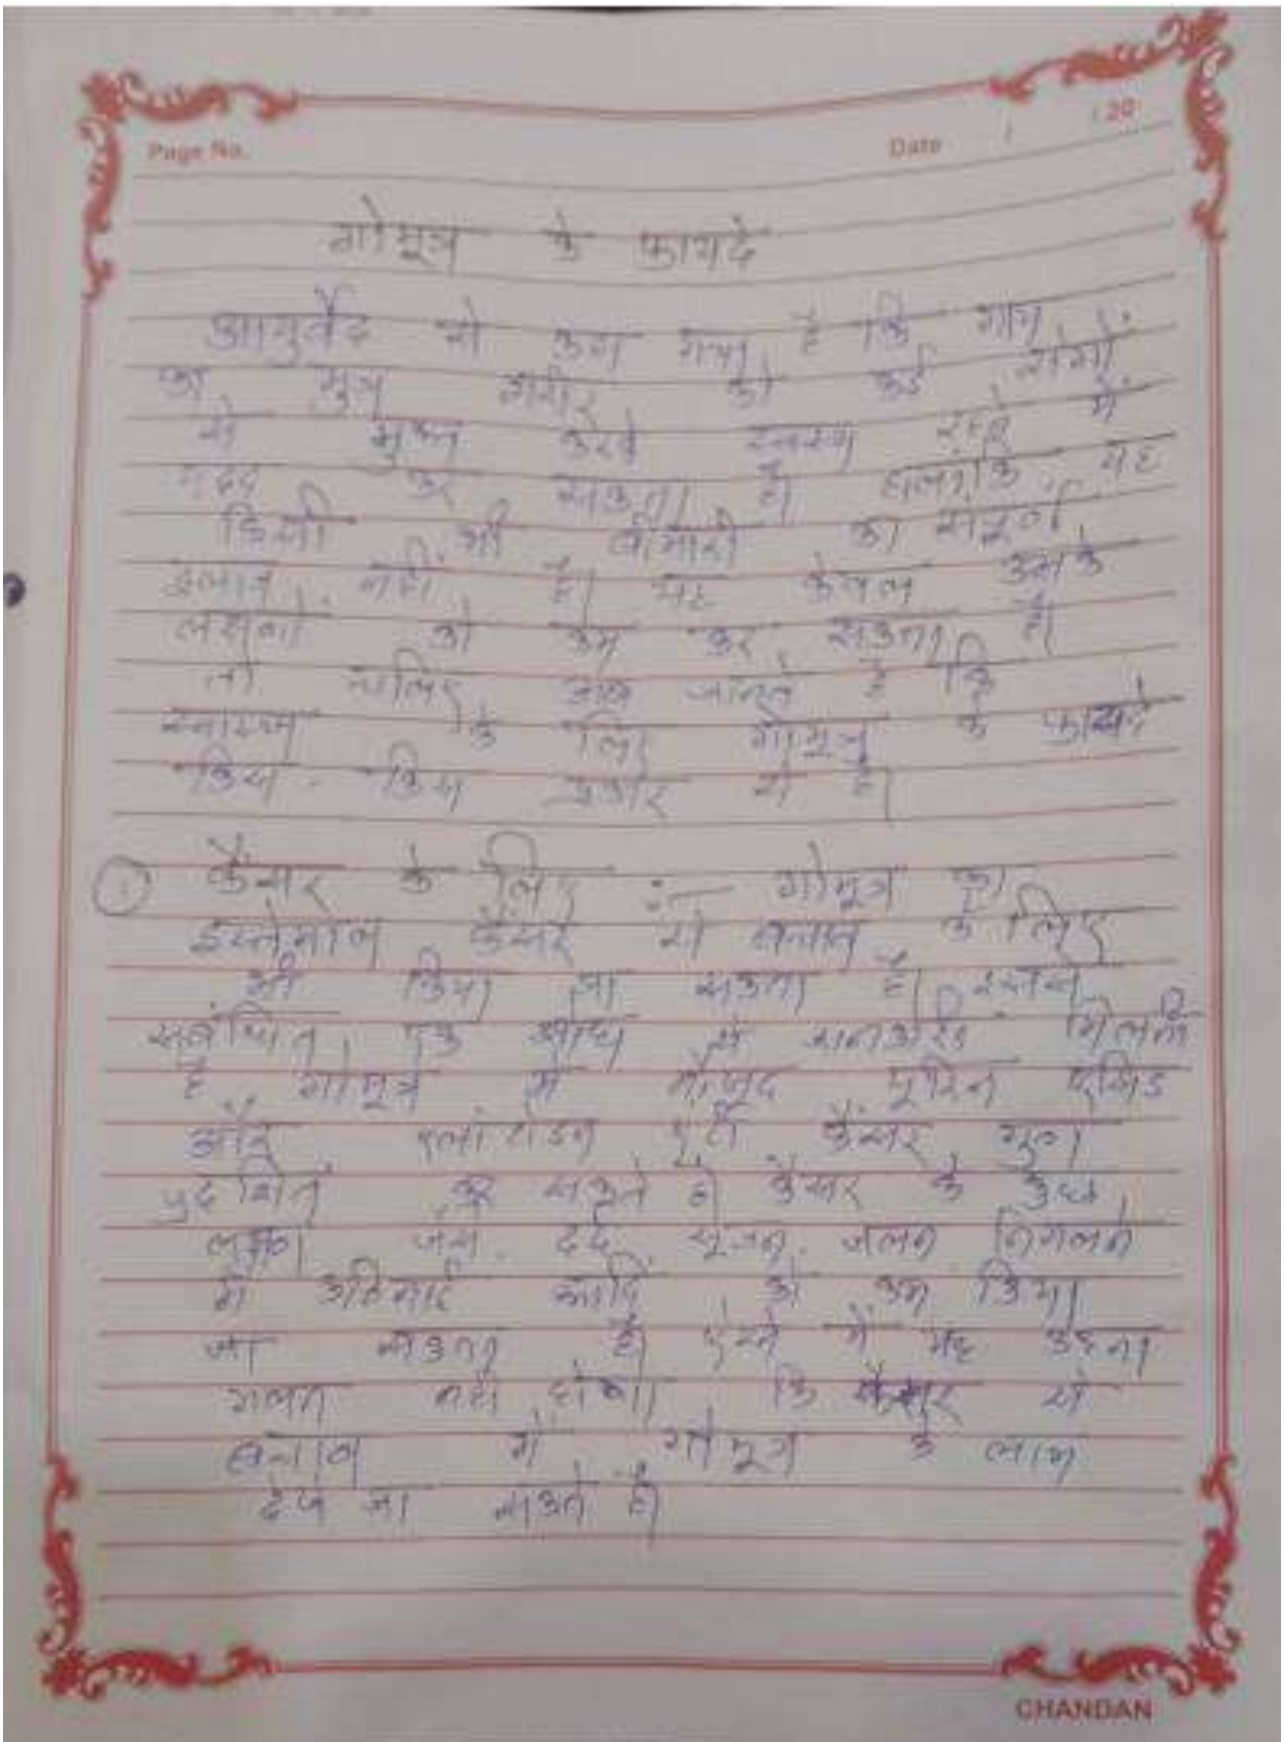 Page No.
Date / / 20
गोमूत्र के फायदे
आयुर्वेद मे कहा गया है कि गाय
का मूत्र शरीर को कई रोगों
से मुक्त करके स्वस्थ रखने में
मदद कर सकता है। हालांकि यह
किसी भी बीमारी का संपूर्ण
इलाज नहीं है। यह केवल उसके
लक्षणों को कम कर सकता है।
तो चलिए अब जानते है कि
स्वास्थ्य के लिए गोमूत्र के फायदे
किस - किस प्रकार से है।
① कैंसर के लिए :- गोमूत्र का
इस्तेमाल कैंसर से बचाव के लिए
भी किया जा सकता है। इससे
संबंधित एक शोध से जानकारी मिलती
है गोमूत्र मे मौजूद यूरिन एसिड
और एलांटोइन एंटी कैंसर गुण
प्रदर्शित कर सकते है कैंसर के कुछ
लक्षण जैसे दर्द सूजन जलन निगलने
मे कठिनाई आदि को कम किया
जा सकता है। ऐसे में यह कहना
गलत नही होगा कि कैंसर से
बचाव में गोमूत्र के लाभ
देखे जा सकते है।
CHANDAN